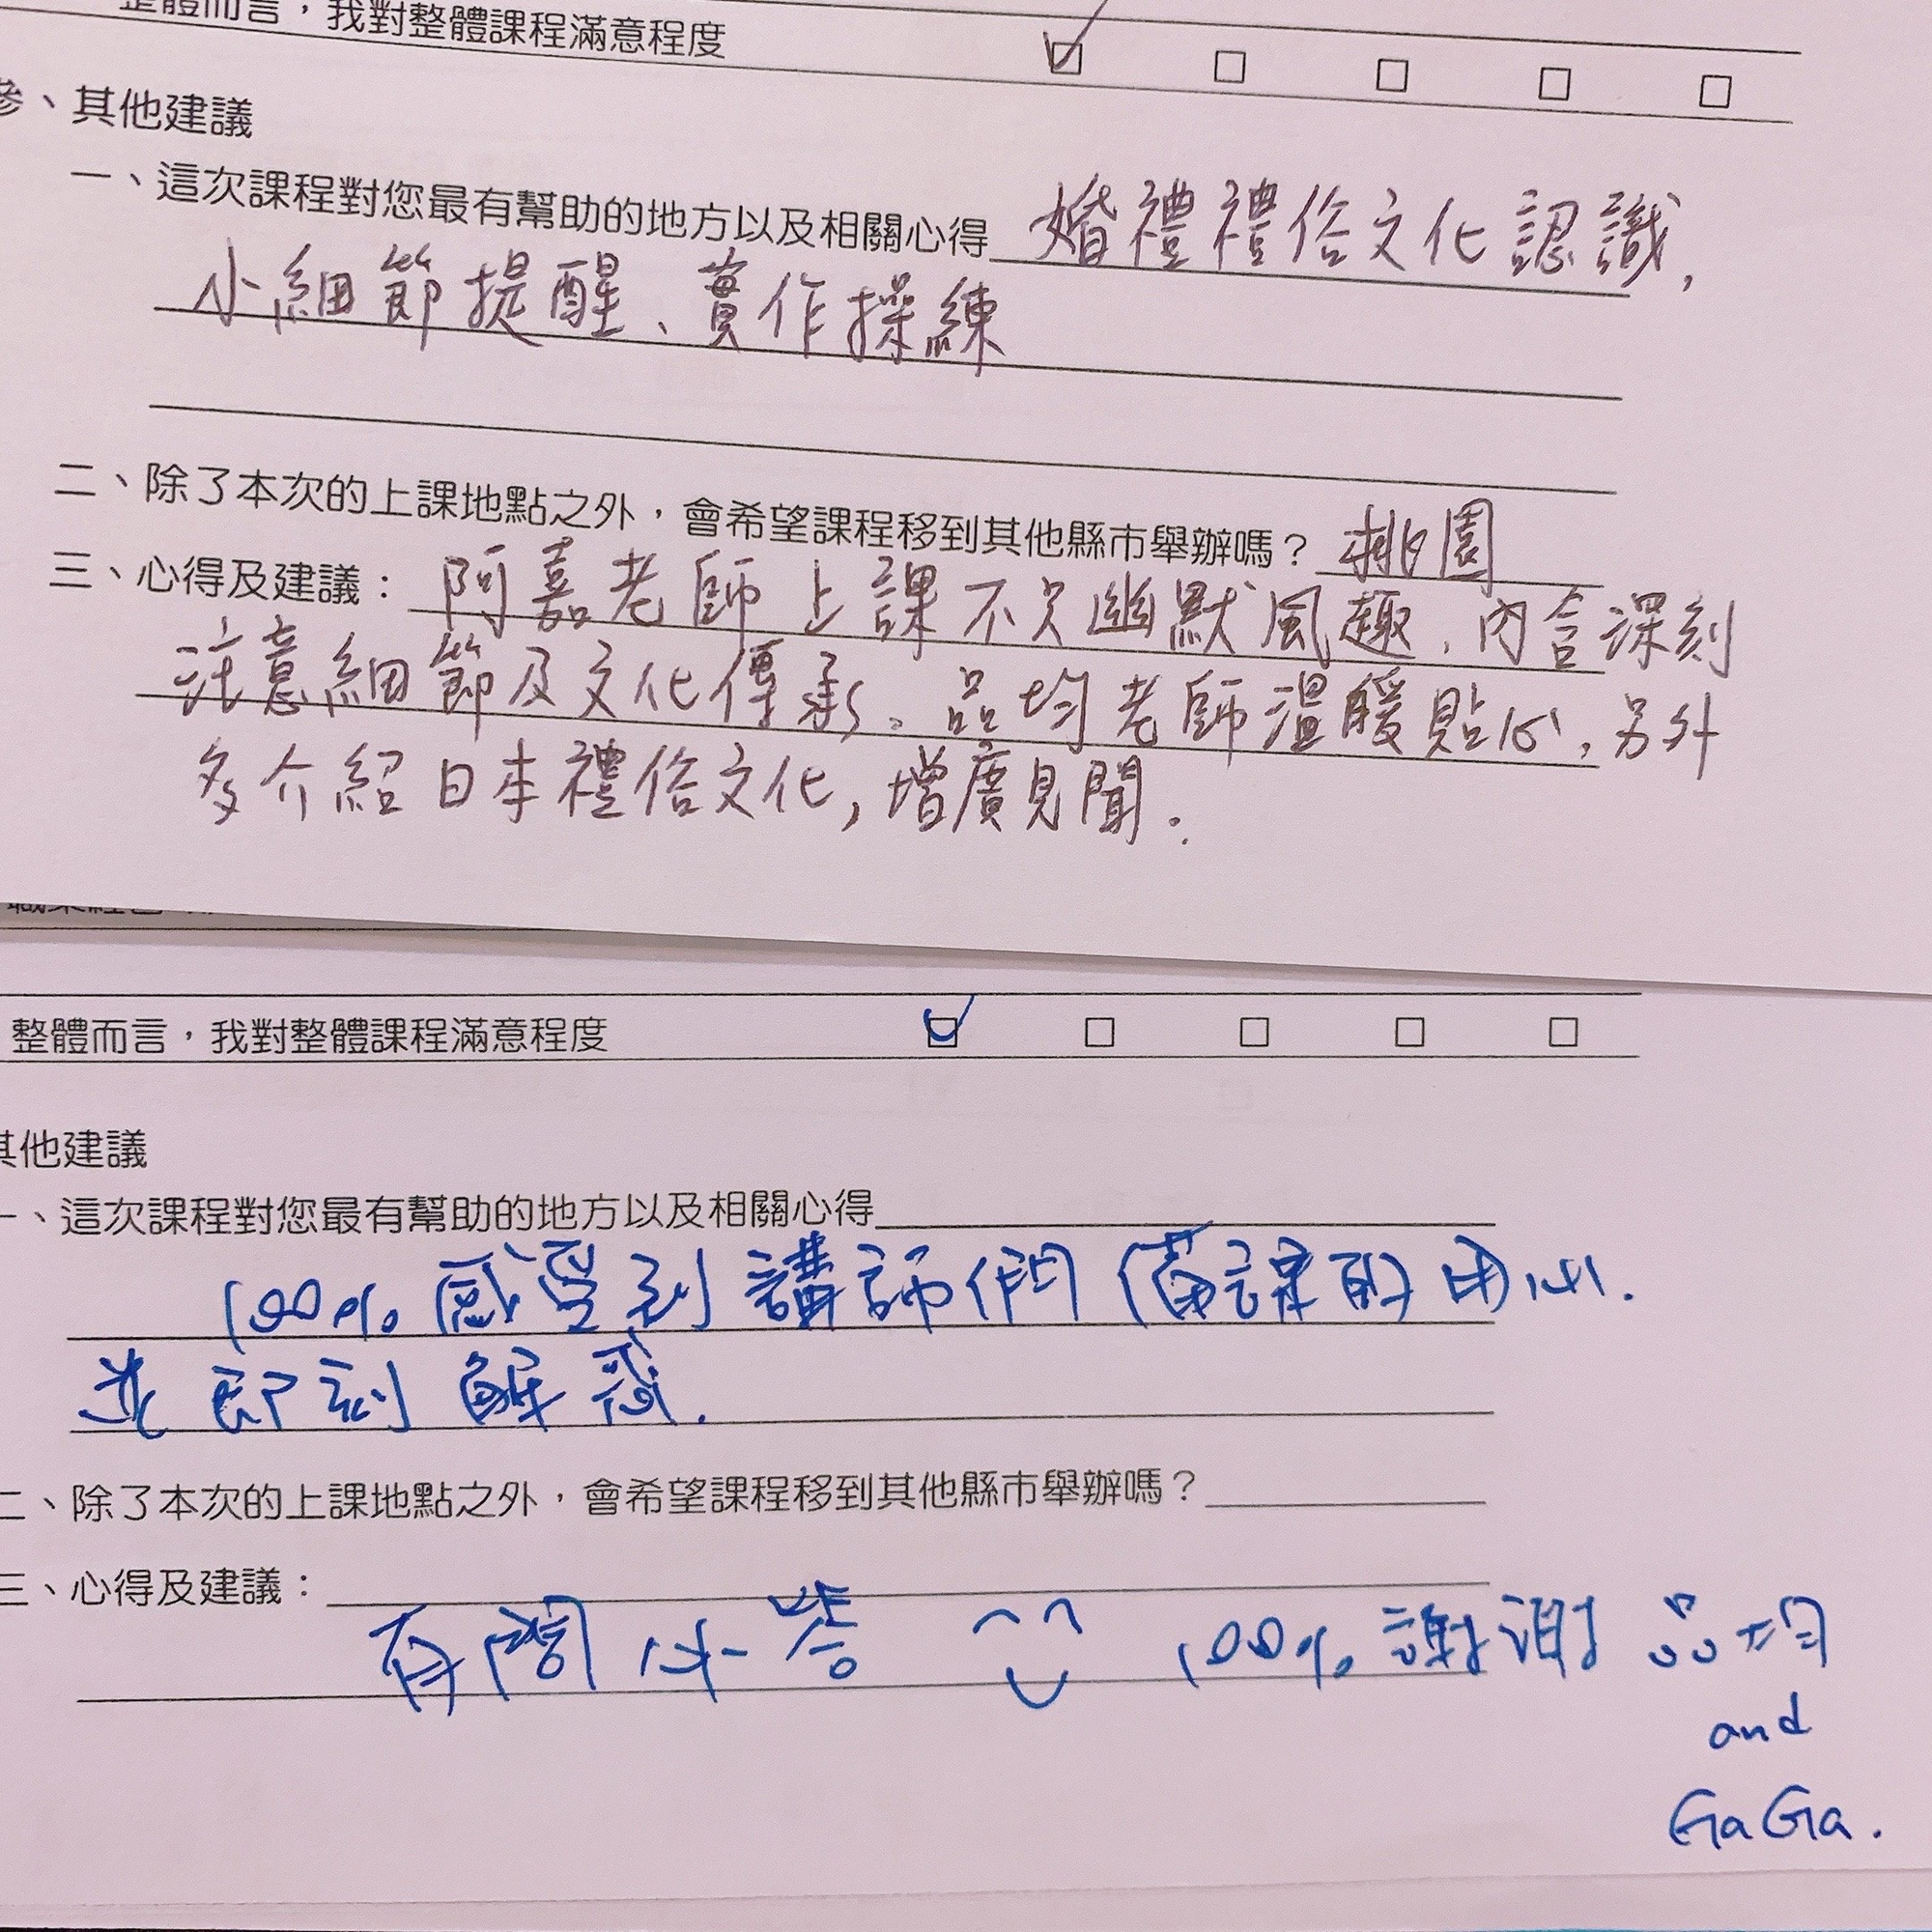 整體而言，我對整體課程滿意程度 □ □ □ □ □
參、其他建議
一、這次課程對您最有幫助的地方以及相關心得 婚禮禮俗文化認識,
小細節提醒、實作操練
二、除了本次的上課地點之外，會希望課程移到其他縣市舉辦嗎？ 桃園
三、心得及建議： 阿嘉老師上課不只幽默風趣,內含深刻
注意細節及文化傳承。品均老師溫暖貼心,另外
多介紹日本禮俗文化,增廣見聞.
整體而言，我對整體課程滿意程度 □ □ □ □ □
其他建議
一、這次課程對您最有幫助的地方以及相關心得
100% 感受到講師們備課的用心.
並即刻解惑.
二、除了本次的上課地點之外，會希望課程移到其他縣市舉辦嗎？
三、心得及建議：
有問必答 100% 謝謝 品均
and
GaGa.